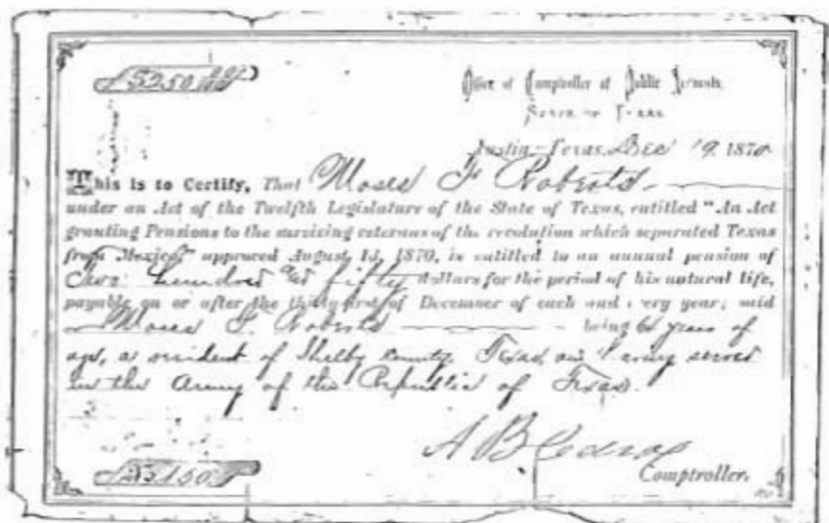 $250
Office of Comptroller of Public Accounts,
State of Texas
Austin, Texas, Dec 19, 1870
This is to Certify, That Moses F Roberts
under an Act of the Twelfth Legislature of the State of Texas, entitled "An Act
granting Pensions to the surviving veterans of the revolution which separated Texas
from Mexico," approved August 13, 1870, is entitled to an annual pension of
Two hundred and fifty dollars for the period of his natural life,
payable on or after the thirty-first of December of each and every year; said
Moses F. Roberts being 64 years of
age, a resident of Shelby County, Texas, and having served
in the Army of the Republic of Texas.
A B
Comptroller.